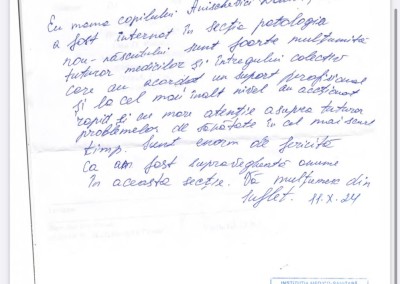 Eu mama copilului Anisei
a fost internat în secția patologia
nou-născutului sunt foarte mulțumită
tuturor medicilor și întregului colectiv
care au acordat un suport profesional
și la cel mai înalt nivel au acționat
rapid și cu mare atenție asupra tuturor
problemelor de sănătate în cel mai scurt
timp. Sunt enorm de fericită
Ca am fost supravegheată anume
în aceasta secție. Vă mulțumesc din
suflet. 11.X.24
INSTITUȚIA MEDICO-SANITARĂ